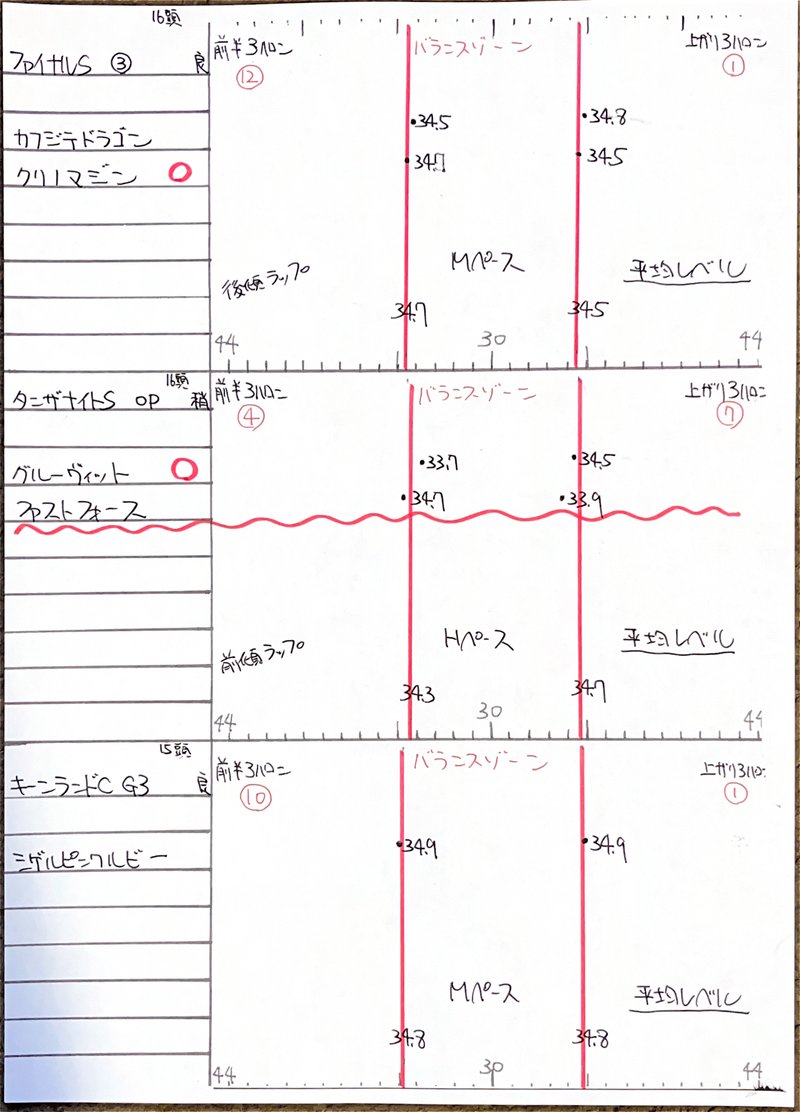 16頭
ファイナルS ③ 良
前半3ハロン
バランスゾーン
上がり3ハロン
⑫
①
カフジテトラゴン
34.5
34.8
クリノマジン
34.7
34.5
Mペース
平均レベル
後傾ラップ
34.7
34.5
44
30
44
16頭
タンザナイトS OP 稍
前半3ハロン
バランスゾーン
上がり3ハロン
④
⑦
グルーヴィット
33.7
34.5
ファストフォース
34.7
33.9
Hペース
平均レベル
前傾ラップ
34.3
34.7
44
30
44
15頭
キーンランドC G3 良
前半3ハロン
バランスゾーン
上がり3ハロン
⑩
①
ミゲルピンクルビー
34.9
34.9
Mペース
平均レベル
34.8
34.8
44
30
44